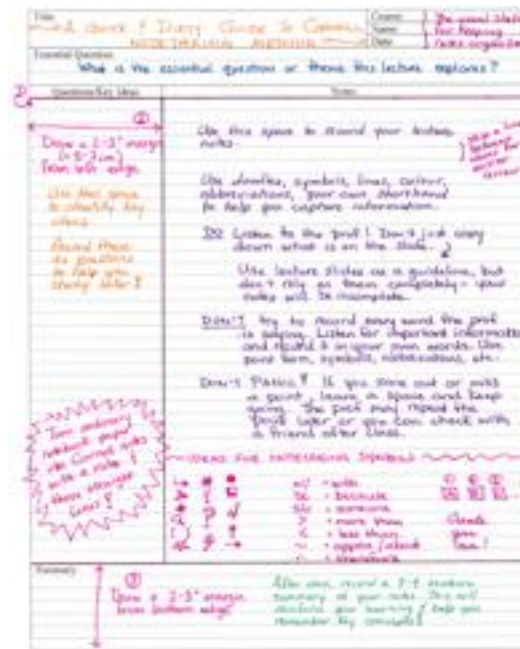 Title
A Quick & Dirty Guide to Cornell
NOTETAKING METHOD
Course
Name
Date
The usual stuff
for keeping
notes organized
Essential Question
What is the essential question or theme this lecture explores?
Questions/Key Ideas
Notes
①
Draw a 2-3" margin
from left edge.
Use this space
to identify key
ideas.
Record these
as questions
to help you
study later!
Use this space to record your lecture
notes.
Use doodles, symbols, lines, colour,
abbreviations, your own shorthand
to help you capture information.
DO Listen to the prof! Don't just copy
down what is on the slide.
Use lecture slides as a guideline, but
don't rely on them completely - your
notes will be incomplete.
DON'T try to record every word the prof
is saying. Listen for important information
and record it in your own words. Use
point form, symbols, abbreviations, etc.
DON'T PANIC! If you zone out or miss
a point, leave a space and keep
going. The prof may repeat the
point later or you can check with
a friend after class.
Turn ordinary
notebook paper
into Cornell notes
with a ruler!
IDEAS FOR NOTETAKING SYMBOLS
w/ - with
bc - because
- someone
> - more than
< - less than
~ - approx/about
∴ - therefore
Create
your
own!
Summary
③
Draw a 2-3" margin
from bottom edge
After class, record a sentence
summary of your notes. This will
reinforce your learning & help you
remember key concepts!